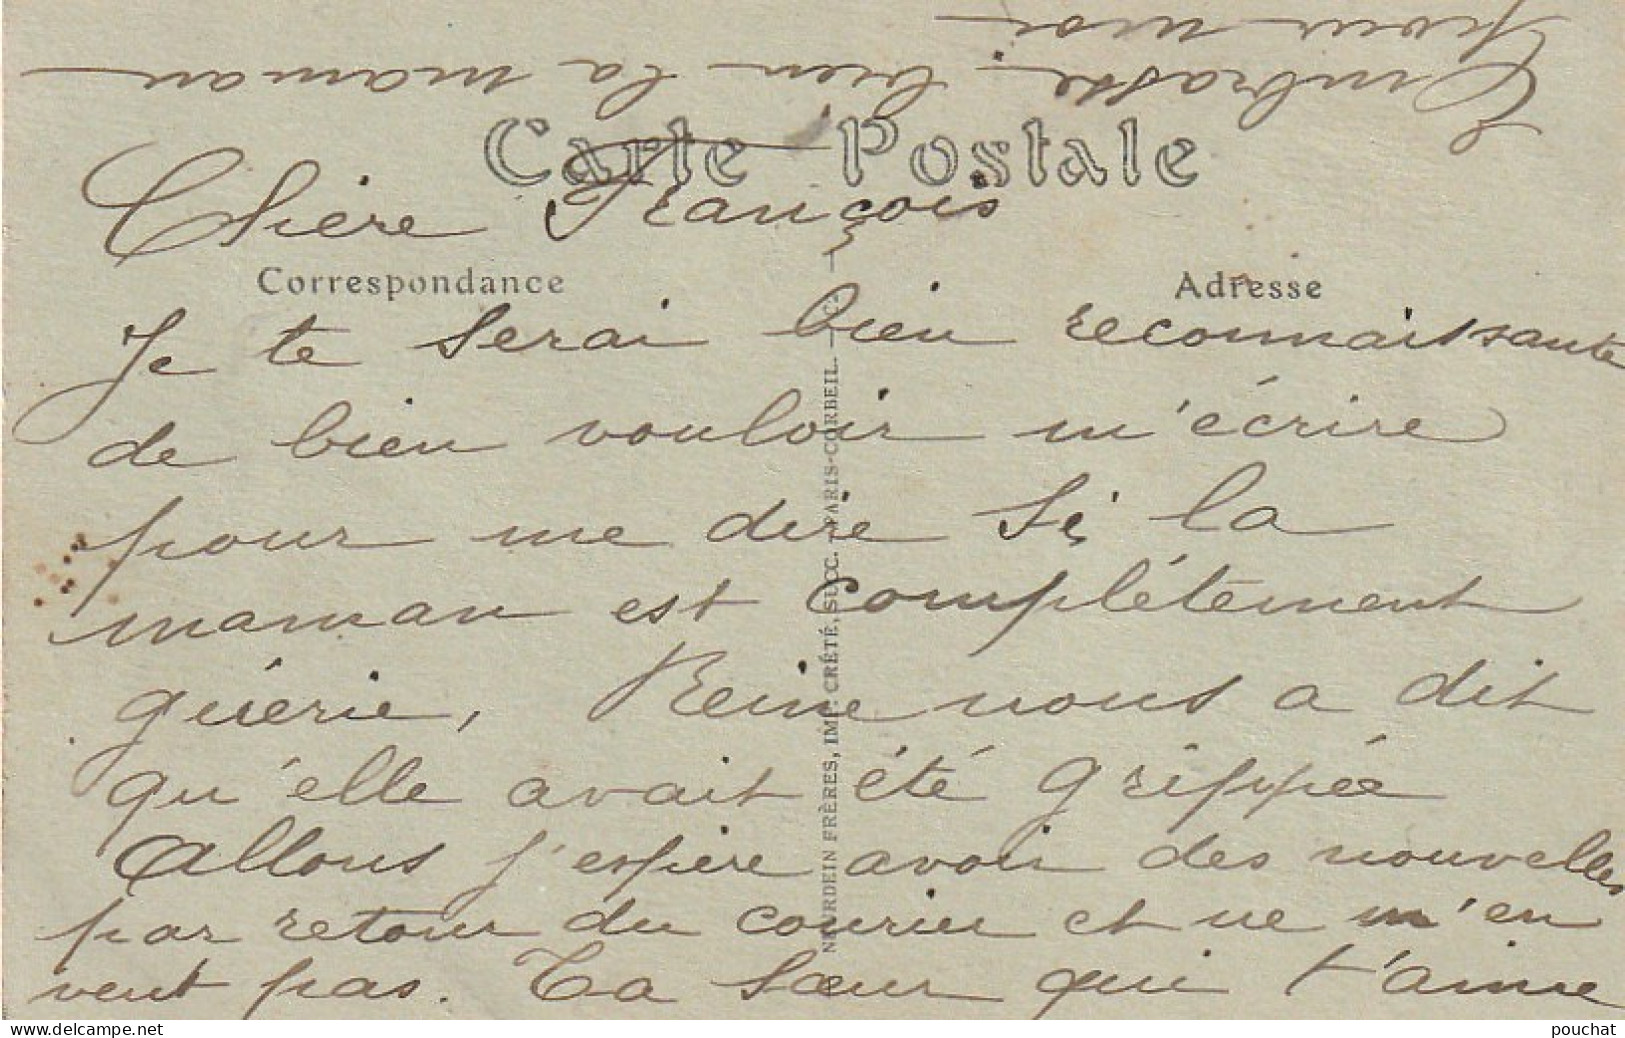 Embrasse bien la maman
pour moi
Carte Postale
Chère François
Correspondance
Adresse
Je te serai bien reconnaissante
de bien vouloir m'écrire
pour me dire si la
maman est complétement
guérie, Reine nous a dit
qu'elle avait été grippée
Allons j'espère avoir des nouvelles
par retour du courier et ne m'en
veut pas. Ta sœur qui t'aime
NEURDEIN FRÈRES, IMP. CRÉTÉ, SUCC. PARIS-CORBEIL.
www.delcampe.net
pouchat